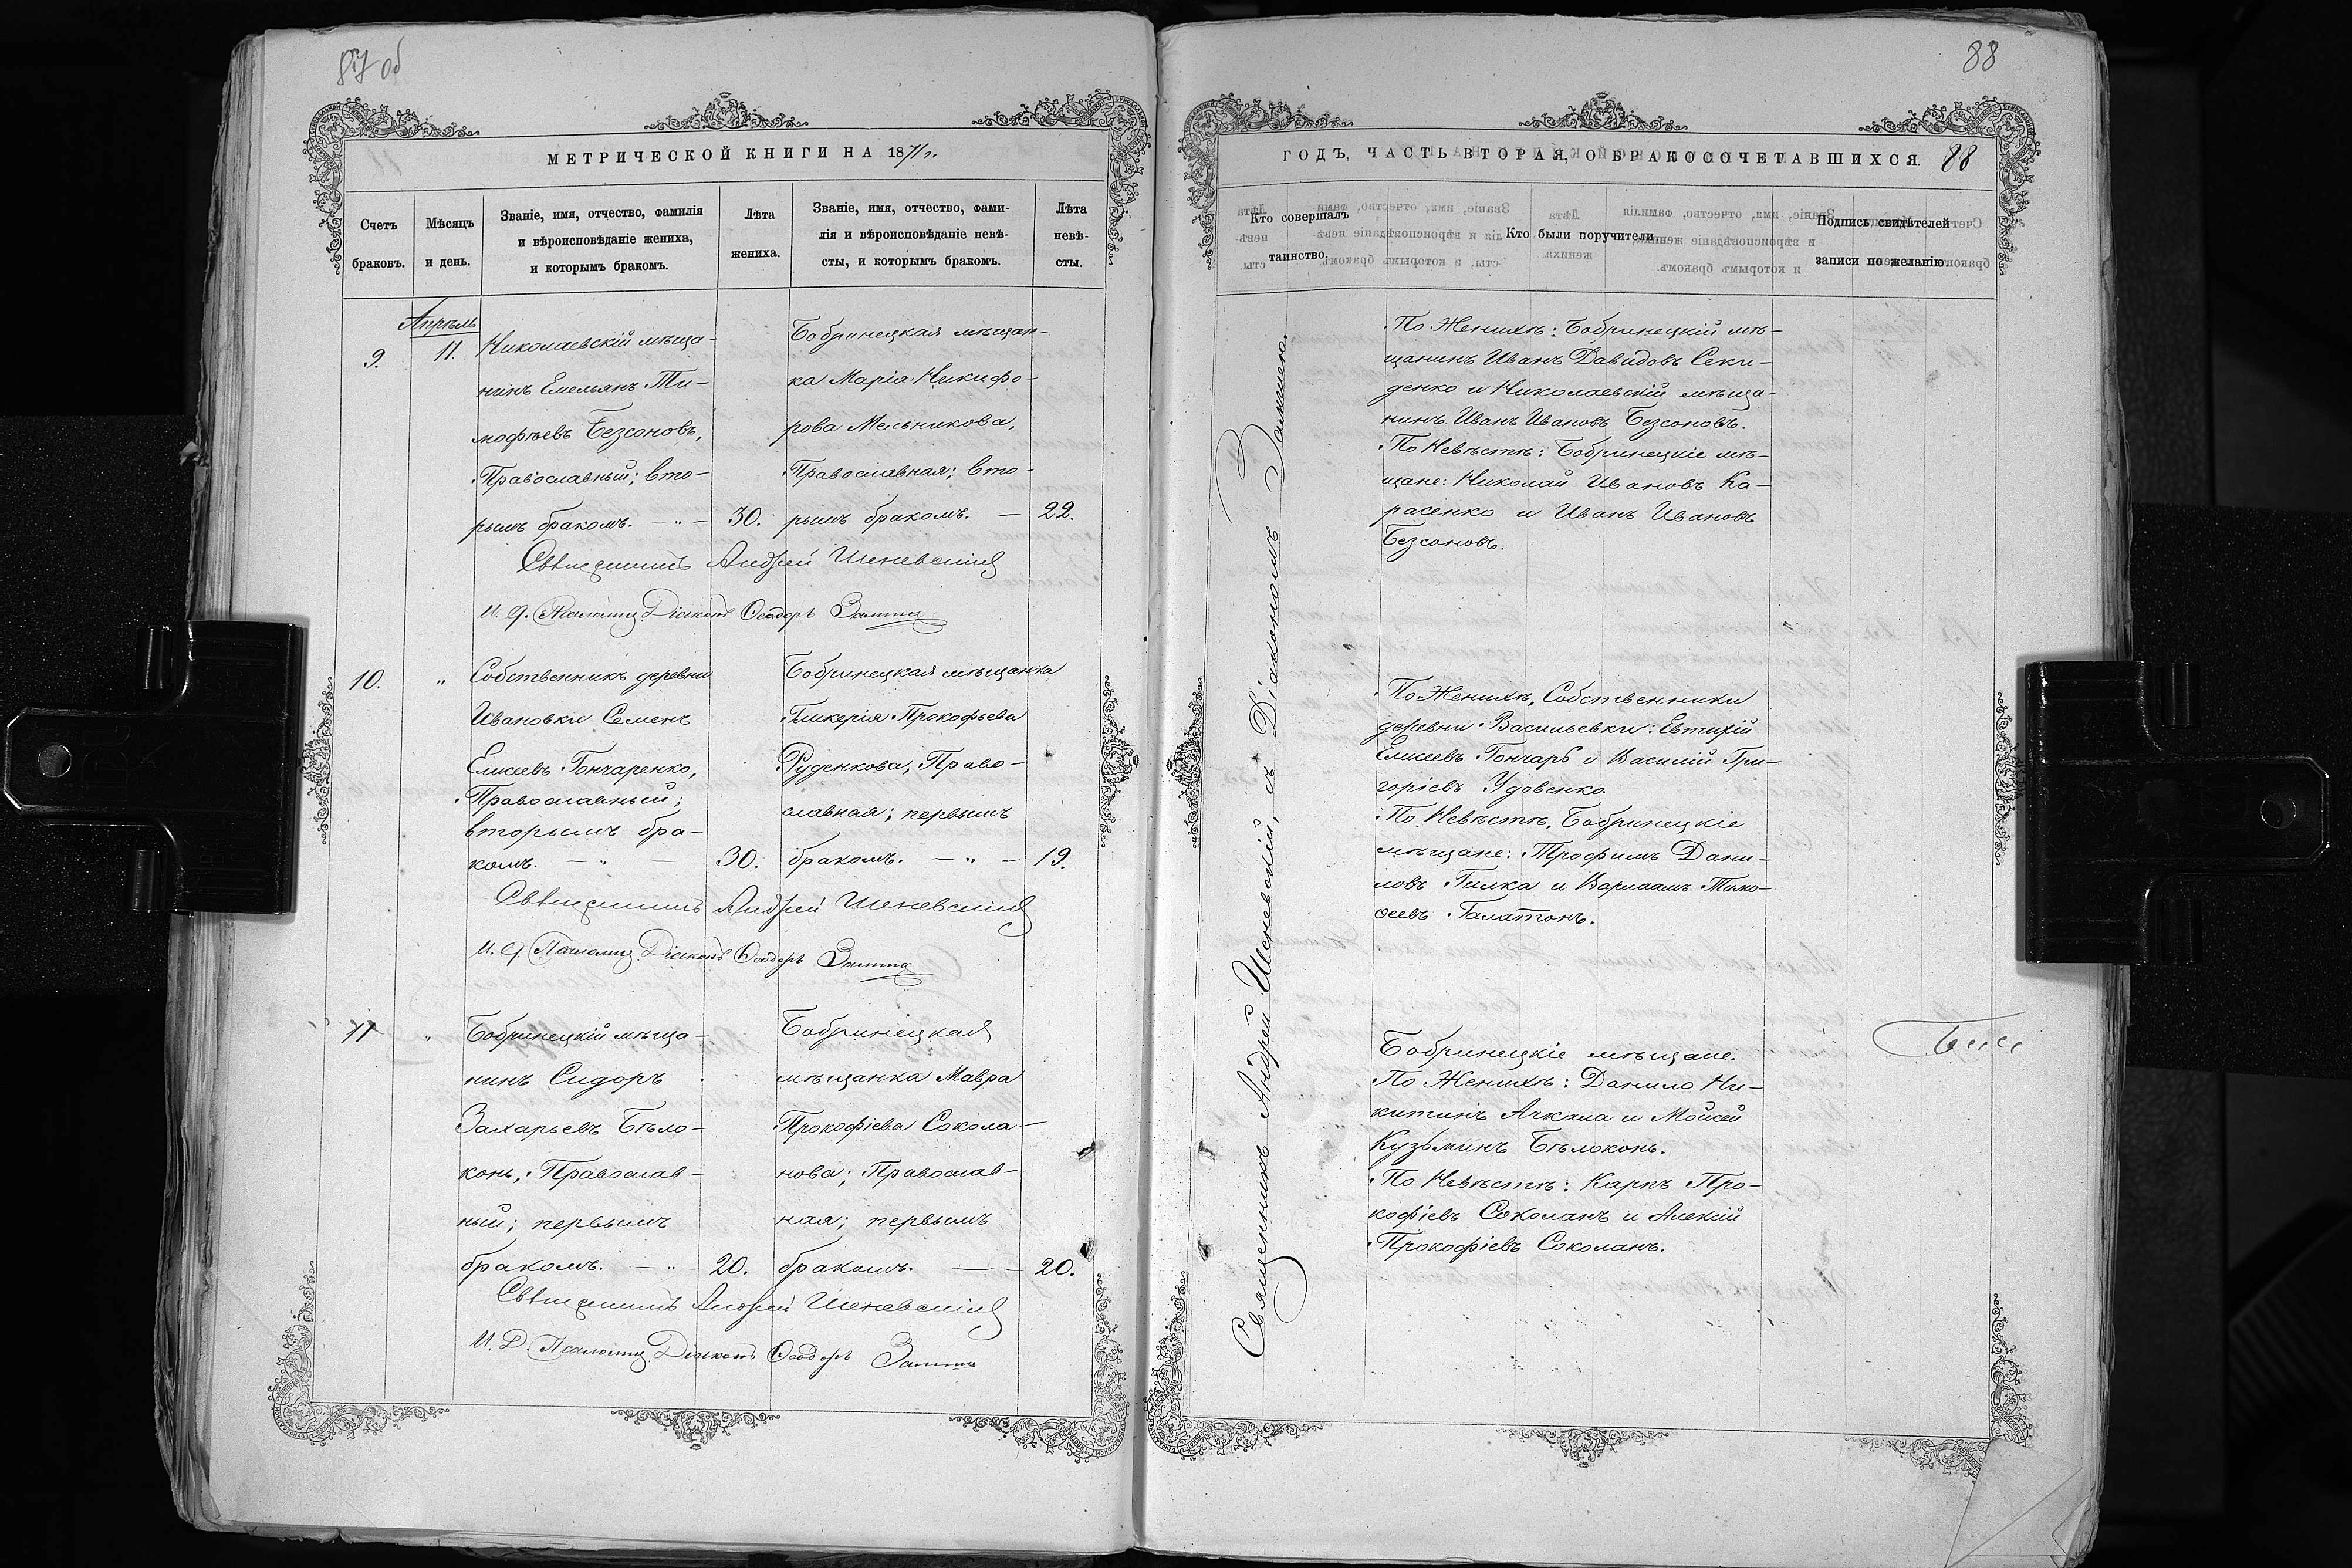 87 об
МЕТРИЧЕСКОЙ КНИГИ НА 1871 г.
Счетъ браковъ.
Мѣсяцъ и день.
Званіе, имя, отчество, фамилія
и вѣроисповѣданіе жениха,
и которымъ бракомъ.
Лѣта жениха.
Званіе, имя, отчество, фами-
лія и вѣроисповѣданіе невѣ-
сты, и которымъ бракомъ.
Лѣта невѣ-
сты.
Апрѣль
9. 11.
Николаевскій мѣща-
нинъ Емельянъ Ти-
мофѣевъ Безсоновъ,
Православный; вто-
рымъ бракомъ. — „ — 30.
Бобринецкая мѣщан-
ка Марія Никифо-
рова Мельникова,
Православная; вто-
рымъ бракомъ. — 22.
Священникъ Андрей Шеневскій
И. д. Псаломщ. Діаконъ Ѳеодоръ
10. „
Собственникъ деревни
Ивановки Семенъ
Елисеевъ Гончаренко,
Православный;
вторымъ бра-
комъ. — „ — 30.
Бобринецкая мѣщанка
Гликерія Прокофьева
Руденкова, Право-
славная; первымъ
бракомъ. — „ — 19.
Священникъ Андрей Шеневскій
И. д. Псаломщ. Діаконъ Ѳеодоръ
11 „
Бобринецкій мѣща-
нинъ Сидоръ
Захарьевъ Бѣло-
конь, Православ-
ный; первымъ
бракомъ. — „ 20.
Бобринецкая
мѣщанка Мавра
Прокофіева Сокола-
нова; Православ-
ная; первымъ
бракомъ. — — 20.
Священникъ Андрей Шеневскій
И. Д. Псаломщ. Діаконъ Ѳеодоръ
88
ГОДЪ, ЧАСТЬ ВТОРАЯ, О БРАКОСОЧЕТАВШИХСЯ. 88
Кто совершалъ
таинство.
Кто были поручители.
Подпись свидѣтелей
записи по желанію.
Священникъ Андрей Шеневскій, съ Діакономъ
По Женихѣ: Бобринецкій мѣ-
щанинъ Иванъ Давидовъ Секи-
денко и Николаевскій мѣща-
нинъ Иванъ Ивановъ Безсоновъ.
По Невѣстѣ: Бобринецкіе мѣ-
щане: Николай Ивановъ Ка-
расенко и Иванъ Ивановъ
Безсоновъ.
По Женихѣ, Собственники
деревни Васильевки: Евтихій
Елисеевъ Гончаръ и Василій Гри-
горіевъ Удовенко.
По Невѣстѣ, Бобринецкіе
мѣщане: Трофимъ Дани-
ловъ Гилка и Варлаамъ Тимо-
ѳеевъ Галатонъ.
Бобринецкіе мѣщане.
По Женихѣ: Данило Ни-
китинъ Ачкала и Моисей
Кузьминъ Бѣлоконь.
По Невѣстѣ: Карпъ Про-
кофіевъ Соколанъ и Алексій
Прокофіевъ Соколанъ.